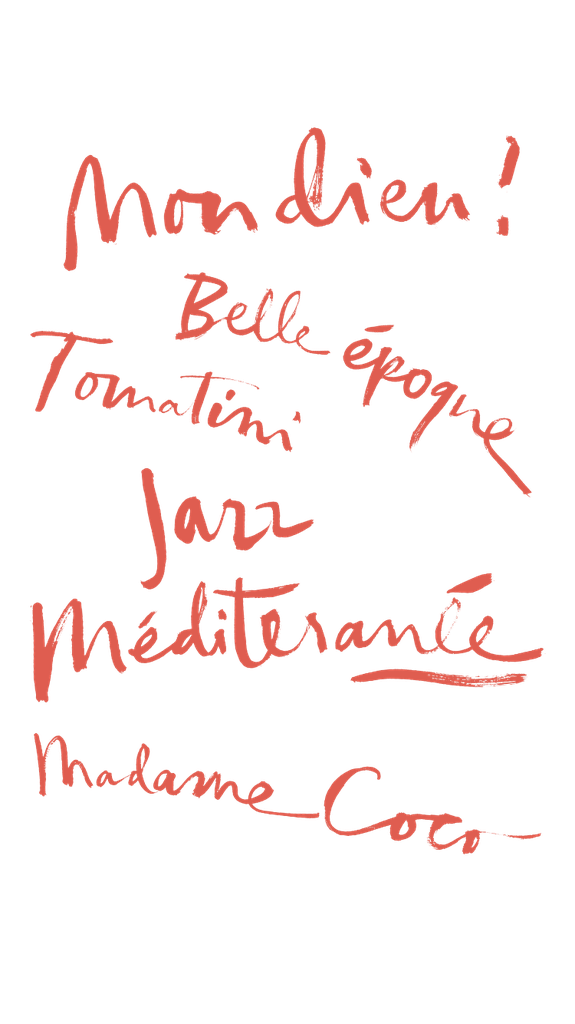 Mon dieu!
Belle époque
Tomatini
Jazz
Méditeranée
Madame Coco